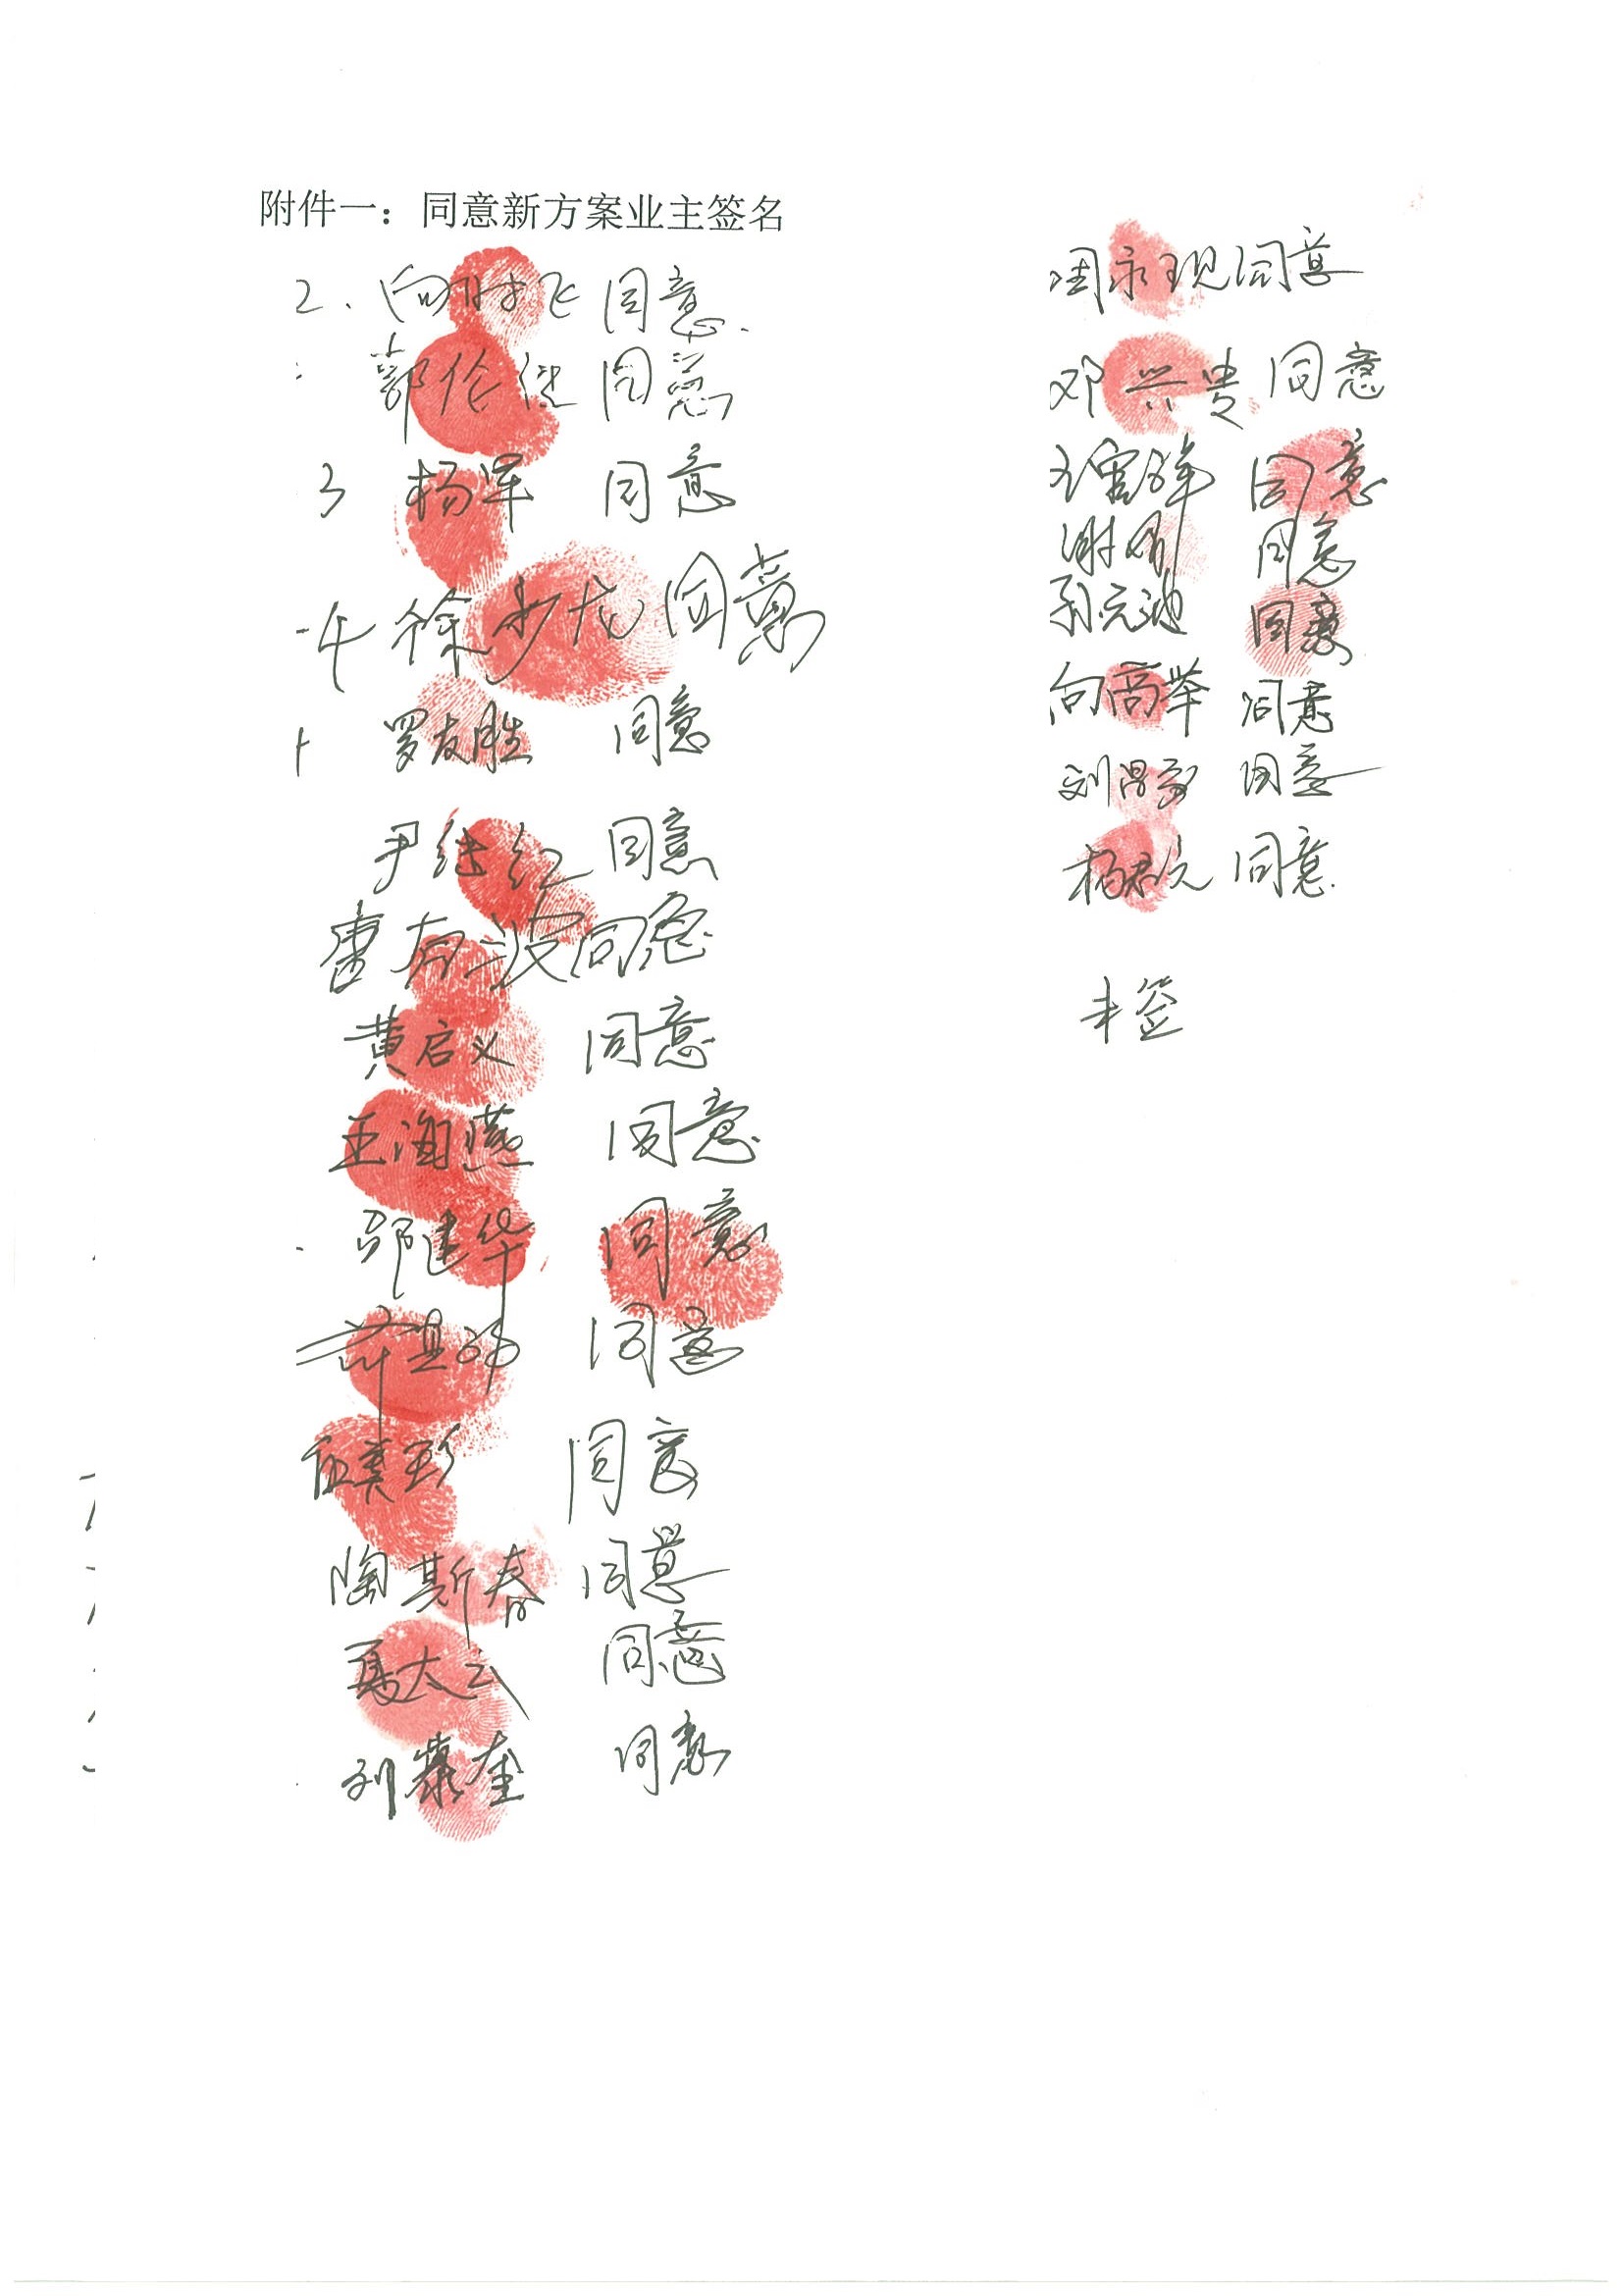 附件一：同意新方案业主签名
2. 向时飞 同意.
郭伦继 同意
3 杨军 同意
4 徐少龙 同意
罗友胜 同意
尹继红 同意
同意
黄启义 同意
王海燕 同意
邵建华 同意
同意
同意
陶斯春 同意
夏大云 同意
刘 同意
周永现 同意
邓兴贵 同意
同意
谢 同意
孙元 同意
向高举 同意
刘昌 同意
杨君元 同意
未签